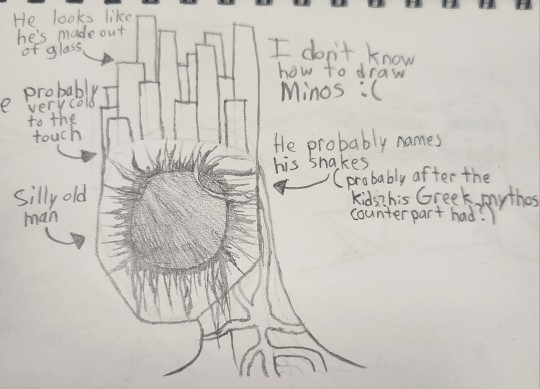 He looks like
he's made out
of glass
I don't know
how to draw
Minos :(
e probably
very cold
to the
touch
He probably names
his snakes
(probably after the
kids his Greek mythos
counterpart had?)
Silly old
man